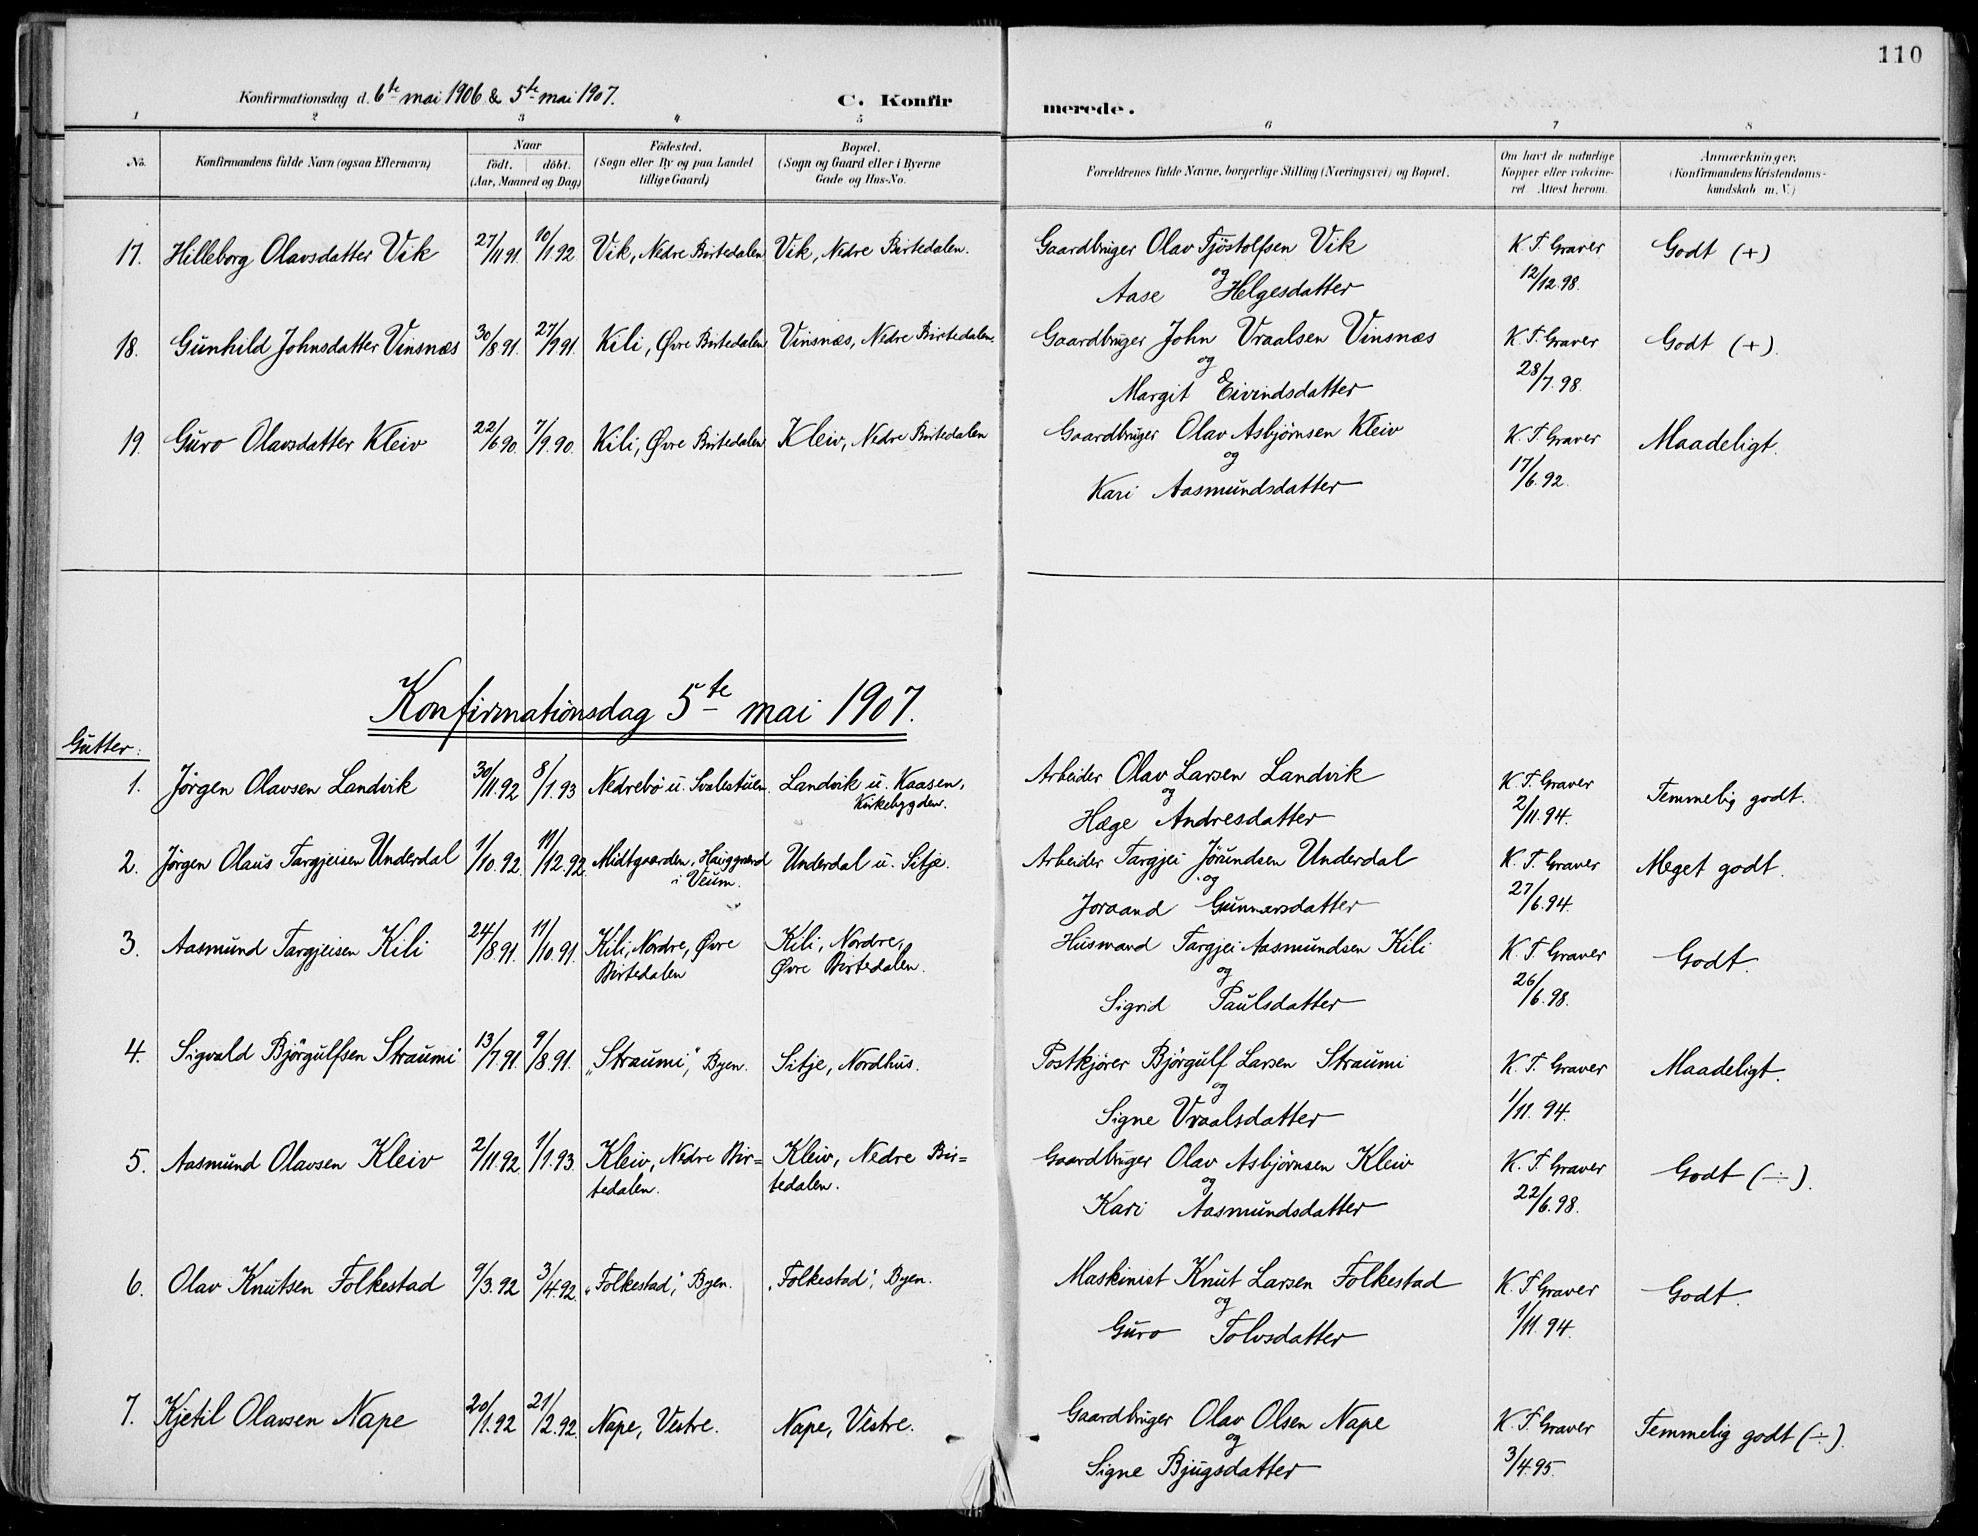 110
Konfirmationsdag d. 6te mai 1906 & 5te mai 1907.
C. Konfir
merede.
1 2 3 4 5 6 7 8
No. Konfirmandens fulde Navn (ogsaa Efternavn)
Naar
født. døbt.
(Aar, Maaned og Dag)
Fødested.
(Sogn eller By og paa Landet
tillige Gaard)
Bopæl.
(Sogn og Gaard eller i Byerne
Gade og Hus-No.
Forældrenes fulde Navne, borgerlige Stilling (Næringsvei) og Bopæl.
Om havt de naturlige
Kopper eller vakcine-
ret. Attest herom.
Anmærkninger.
(Konfirmandens Kristendoms-
kundskab m. V.)
17. Hilleborg Olavsdatter Vik 27/11 91. 10/1 92 Vik, Nedre Birtedalen Vik, Nedre Birtedalen. Gaardbruger Olav Tjøstolfsen Vik K. T. Graver Godt (+)
og
Aase Helgesdatter 12/12.98.
18. Gunhild Johnsdatter Vinsnæs 30/8 91. 27/9 91. Kili, Øvre Birtedalen Vinsnæs, Nedre Birtedalen. Gaardbruger John Vraalsen Vinsnæs K. T. Graver Godt (+).
og
Margit Eivindsdatter 28/7.98.
19. Guro Olavsdatter Kleiv 22/6 90. 7/9.90. Kili, Øvre Birtedalen Kleiv, Nedre Birtedalen Gaardbruger Olav Asbjørnsen Kleiv K. T. Graver Maadeligt.
og
Kari Aasmundsdatter 17/6.92.
Konfirmationsdag 5te mai 1907.
Gutter:
1. Jørgen Olavsen Landvik 30/11.92 8/1.93 Nedrebø u. Svalestuen. Landvik u. Kaasen, Arbeider Olav Larsen Landvik K. T. Graver Temmelig godt.
Kirkebygden.
og
Hæge Andresdatter 2/11.94.
2. Jørgen Olaus Targjeisen Underdal 1/10.92 11/12.92. Midtgaarden, Hauggrænd Underdal u. Sitje. Arbeider Targjei Jørundsen Underdal K. T. Graver Meget godt.
i Veum.
og
Joraand Gunnarsdatter 27/6.94.
3. Aasmund Targjeisen Kili 24/8 91. 11/10.91. Kili, Nordre, Øvre Kili, Nordre, Husmand Targjei Aasmundsen Kili K. T. Graver Godt.
Birtedalen Øvre Birtedalen.
og
Sigrid Paulsdatter 26/6.98.
4. Sigvald Bjørgulfsen Straumi 13/7 91. 9/8.91. „Straumi", Byen. Sitje, Nordhus. Postkjører Bjørgulf Larsen Straumi K. T. Graver Maadeligt.
og
Signe Vraalsdatter 1/11.94.
5. Aasmund Olavsen Kleiv 2/11.92 1/1.93. Kleiv, Nedre Bir= Kleiv, Nedre Bir= Gaardbruger Olav Asbjørnsen Kleiv K. T. Graver Godt (÷).
tedalen. tedalen.
og
Kari Aasmundsdatter 22/6.98.
6. Olav Knutsen Folkestad 9/3.92 3/4.92. „Folkestad", Byen. „Folkestad", Byen. Maskinist Knut Larsen Folkestad K. T. Graver Godt.
og
Guro Tolvsdatter 1/11.94.
7. Kjetil Olavsen Nape 20/1.92 21/2.92. Nape, Vestre. Nape, Vestre. Gaardbruger Olav Olsen Nape K. T. Graver Temmelig godt (÷).
og
Signe Bjugsdatter 3/4.95.